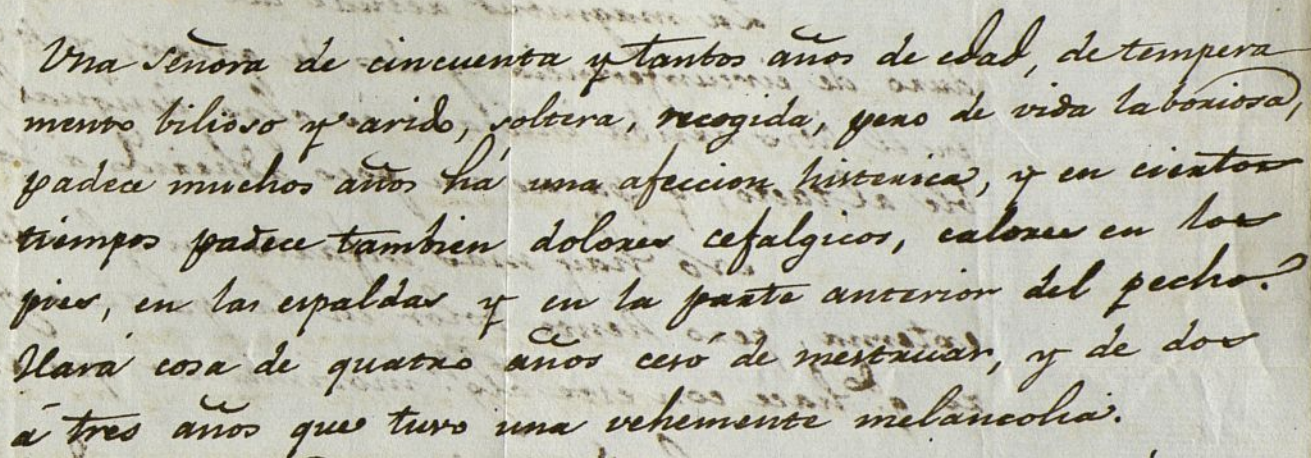 Una Señora de cincuenta y tantos años de edad, de tempera
mento bilioso y arido, soltera, recogida, pero de vida laboriosa,
padece muchos años há una afeccion histerica, y en ciertos
tiempos padece tambien dolores cefalgicos, calores en los
pies, en las espaldas y en la parte anterior del pecho.
Hará cosa de quatro años cesó de mestruar, y de dos
á tres años que tuvo una vehemente melancolia.